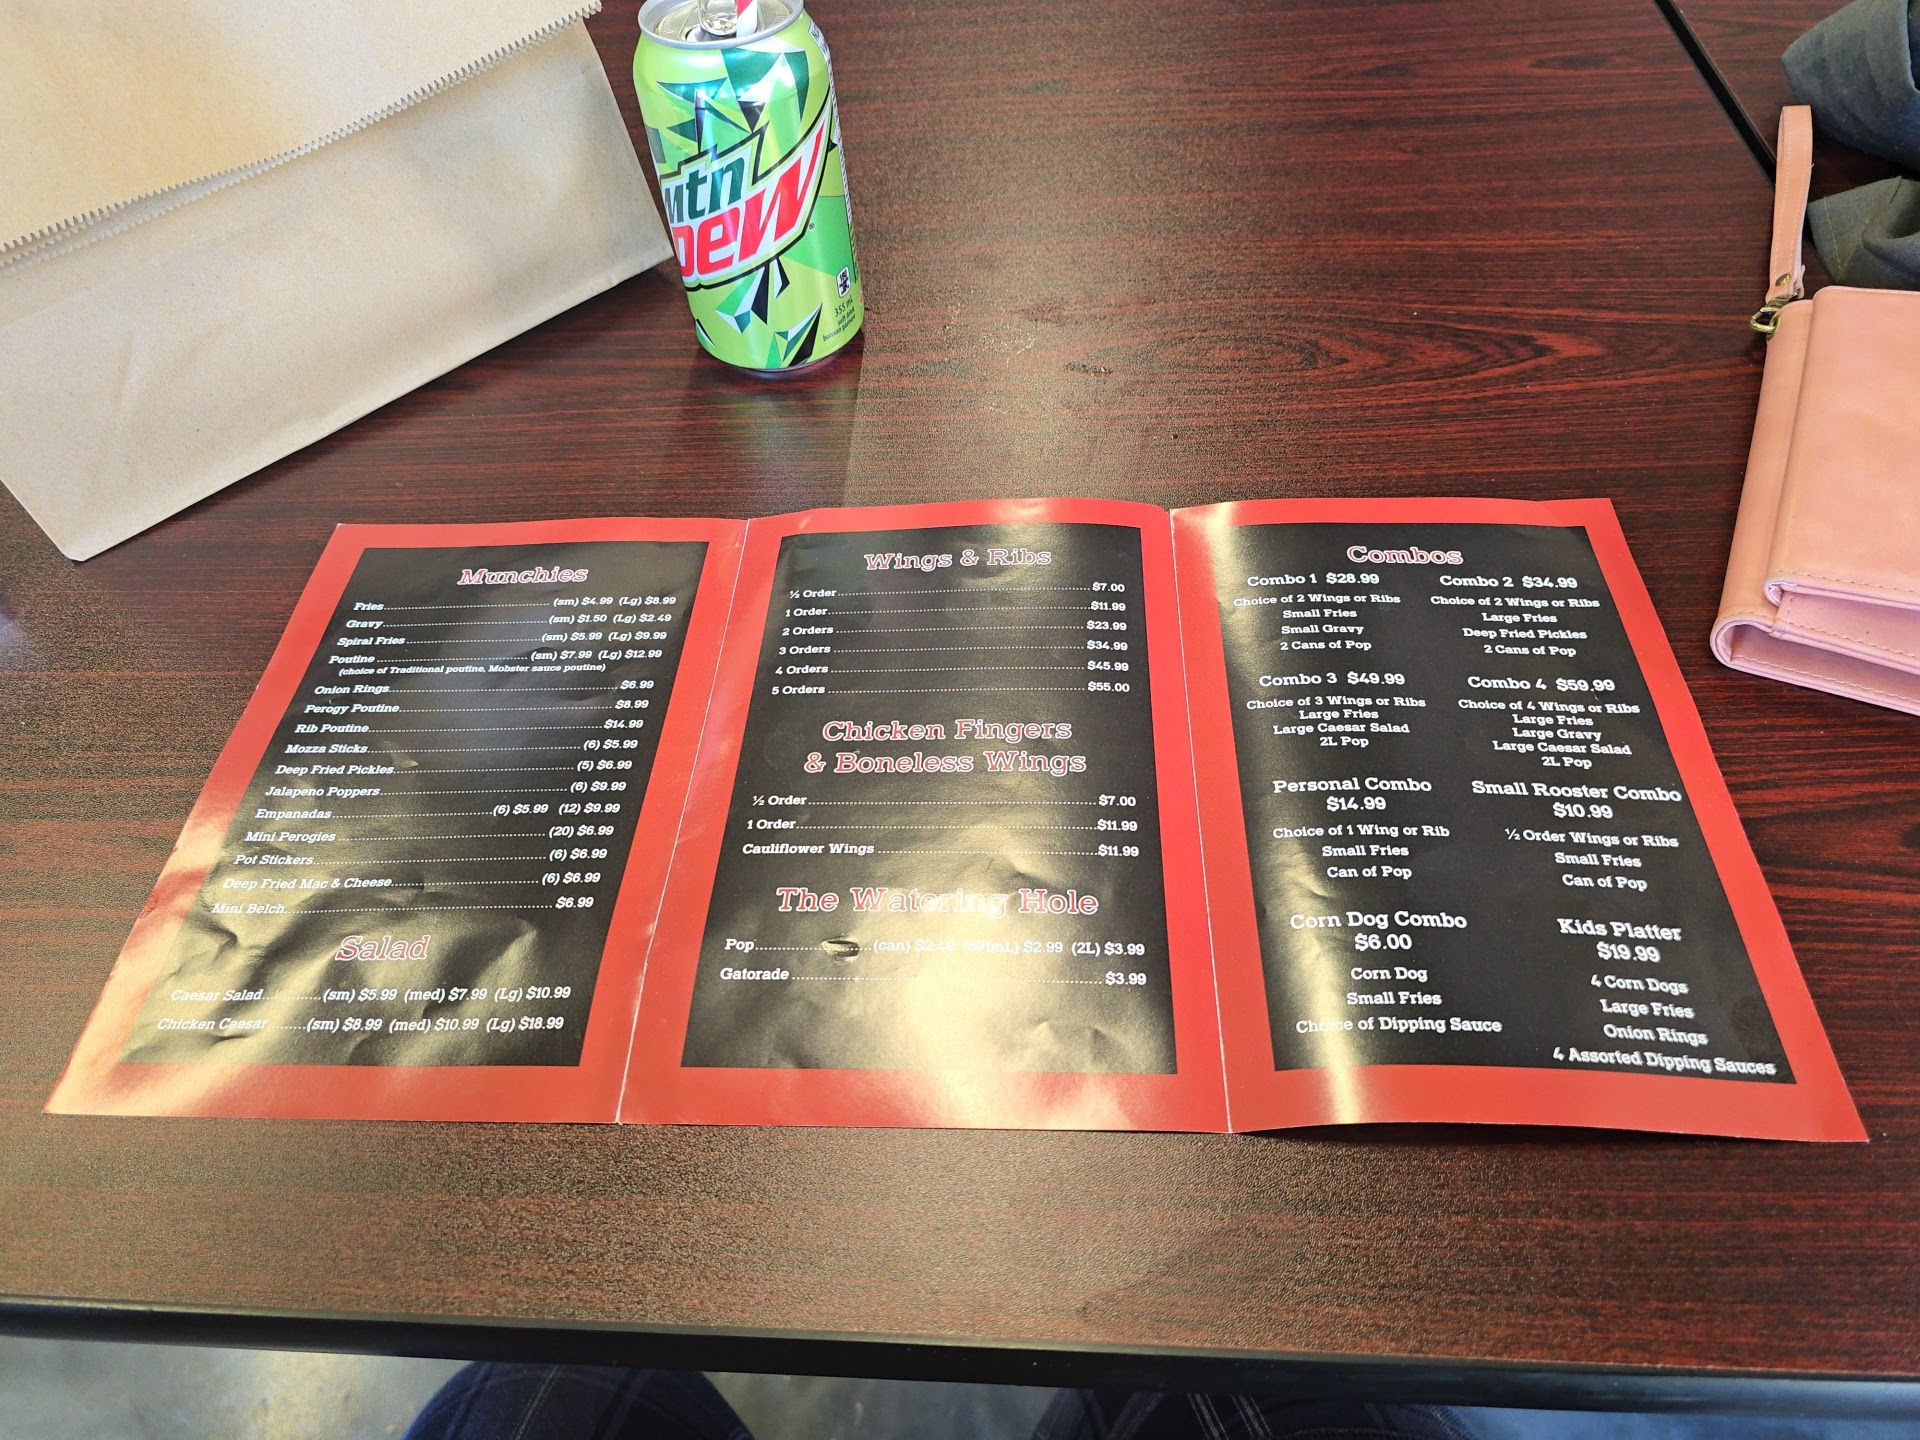 mtn
Dew
355 mL
Munchies
Fries (sm) $4.99 (Lg) $8.99
Gravy (sm) $1.50 (Lg) $2.49
Spiral Fries (sm) $5.99 (Lg) $9.99
Poutine (sm) $7.99 (Lg) $12.99
(choice of Traditional poutine, Mobster sauce poutine)
Onion Rings $6.99
Perogy Poutine $8.99
Rib Poutine $14.99
Mozza Sticks (6) $5.99
Deep Fried Pickles (5) $6.99
Jalapeno Poppers (6) $9.99
Empanadas (6) $5.99 (12) $9.99
Mini Perogies (20) $6.99
Pot Stickers (6) $6.99
Deep Fried Mac & Cheese (6) $6.99
Mini Belch $6.99
Salad
Caesar Salad (sm) $5.99 (med) $7.99 (Lg) $10.99
Chicken Caesar (sm) $8.99 (med) $10.99 (Lg) $18.99
Wings & Ribs
½ Order $7.00
1 Order $11.99
2 Orders $23.99
3 Orders $34.99
4 Orders $45.99
5 Orders $55.00
Chicken Fingers
& Boneless Wings
½ Order $7.00
1 Order $11.99
Cauliflower Wings $11.99
The Watering Hole
Pop (can) $2.49 (591mL) $2.99 (2L) $3.99
Gatorade $3.99
Combos
Combo 1 $28.99
Choice of 2 Wings or Ribs
Small Fries
Small Gravy
2 Cans of Pop
Combo 2 $34.99
Choice of 2 Wings or Ribs
Large Fries
Deep Fried Pickles
2 Cans of Pop
Combo 3 $49.99
Choice of 3 Wings or Ribs
Large Fries
Large Caesar Salad
2L Pop
Combo 4 $59.99
Choice of 4 Wings or Ribs
Large Fries
Large Gravy
Large Caesar Salad
2L Pop
Personal Combo
$14.99
Choice of 1 Wing or Rib
Small Fries
Can of Pop
Small Rooster Combo
$10.99
½ Order Wings or Ribs
Small Fries
Can of Pop
Corn Dog Combo
$6.00
Corn Dog
Small Fries
Choice of Dipping Sauce
Kids Platter
$19.99
4 Corn Dogs
Large Fries
Onion Rings
4 Assorted Dipping Sauces